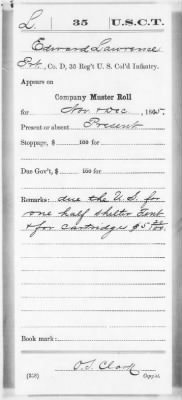 L. 35 U.S.C.T.
Edward Lawrence
Pvt., Co. D, 35 Reg't U. S. Col'd Infantry.
Appears on
Company Muster Roll
for Nov & Dec, 1865.
Present or absent Present
Stoppage, $ 100 for
Due Gov't, $ 100 for
Remarks: due the U.S. for
one half shelter Tent
& for cartridges $5
Book mark:
O.S. Clark
(358) Copyist.